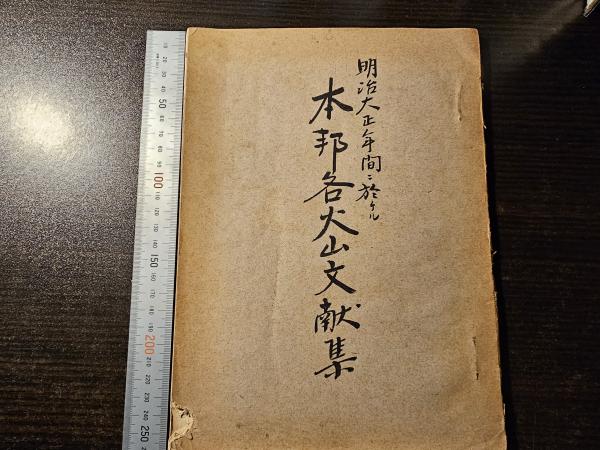 明治大正年間ニ於ケル
本邦各火山文献集
10
20
30
40
50
60
70
80
90
100
110
120
130
140
150
160
170
180
190
200
210
220
230
240
250